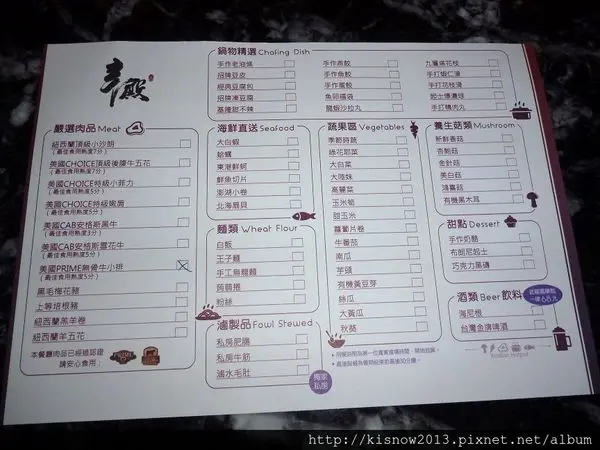 鍋物精選 Chafing Dish
手作老油條
招牌豆皮
經典豆腐包
招牌凍豆腐
基隆甜不辣
手作燕餃
手作魚餃
手作蛋餃
魚卵福袋
龍蝦沙拉丸
九層塔花枝
手打蝦仁滑
手打花枝滑
起士爆漿丸
手打鴨肉丸
嚴選肉品 Meat
紐西蘭頂級小沙朗
(最佳食用熟度7分)
美國CHOICE頂級後腰牛五花
(最佳食用熟度7分)
美國CHOICE特級小菲力
(最佳食用熟度5分)
美國CHOICE特級嫩肩
(最佳食用熟度5分)
美國CAB安格斯黑牛
(最佳食用熟度3分)
美國CAB安格斯雪花牛
(最佳食用熟度5分)
美國PRIME無骨牛小排
(最佳食用熟度5分)
黑毛梅花豬
上等培根豬
紐西蘭羔羊卷
紐西蘭羊五花
本餐廳肉品已經過認證
請安心食用：
海鮮直送 Seafood
大白蝦
蛤蠣
東港鮮蚵
鮮魚切片
澎湖小卷
北海扇貝
麵類 Wheat Flour
白飯
王子麵
手工烏龍麵
蒟蒻捲
粉絲
滷製品 Fowl Stewed
私房肥腸
私房牛筋
滷水毛肚
獨家
私房
蔬果區 Vegetables
季節時蔬
綠花耶菜
大白菜
大陸妹
高麗菜
玉米筍
甜玉米
蘿蔔片卷
牛番茄
南瓜
芋頭
有機黃豆芽
絲瓜
大黃瓜
秋葵
養生菇類 Mushroom
新鮮香菇
杏鮑菇
金針菇
美白菇
鴻喜菇
有機黑木耳
甜點 Dessert
手作奶酪
布朗尼起士
巧克力黑磚
酒類 Beer 飲料
海尼根
台灣金牌啤酒
一律68元
http://kisnow2013.pixnet.net/album